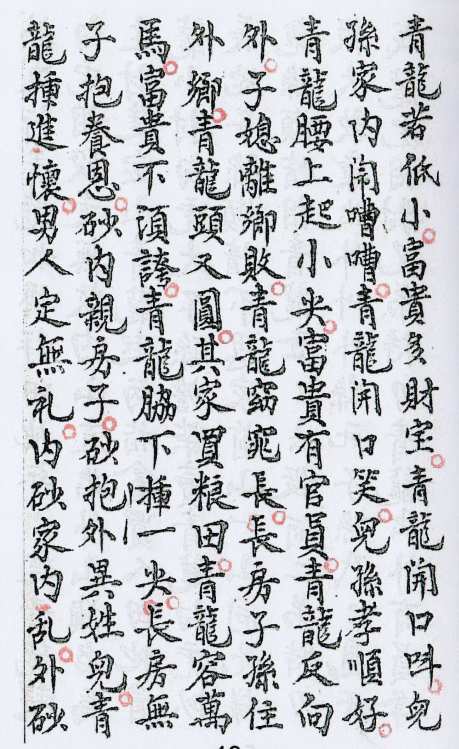 青龍若低小富貴多財宝青龍開口呌兒
孫家内闹嘈嘈青龍開口笑兒孫孝順好
青龍腰上起小尖富貴有官員青龍反向
外子媳離鄉敗青龍窈窕長長房子孫住
外鄉青龍頭又圓其家買粮田青龍容萬
馬富貴不須誇青龍脇下揷一尖長房無
子抱養恩砂内親房子砂抱外異姓兒青
龍揷進懷男人定無礼内砂家内乱外砂